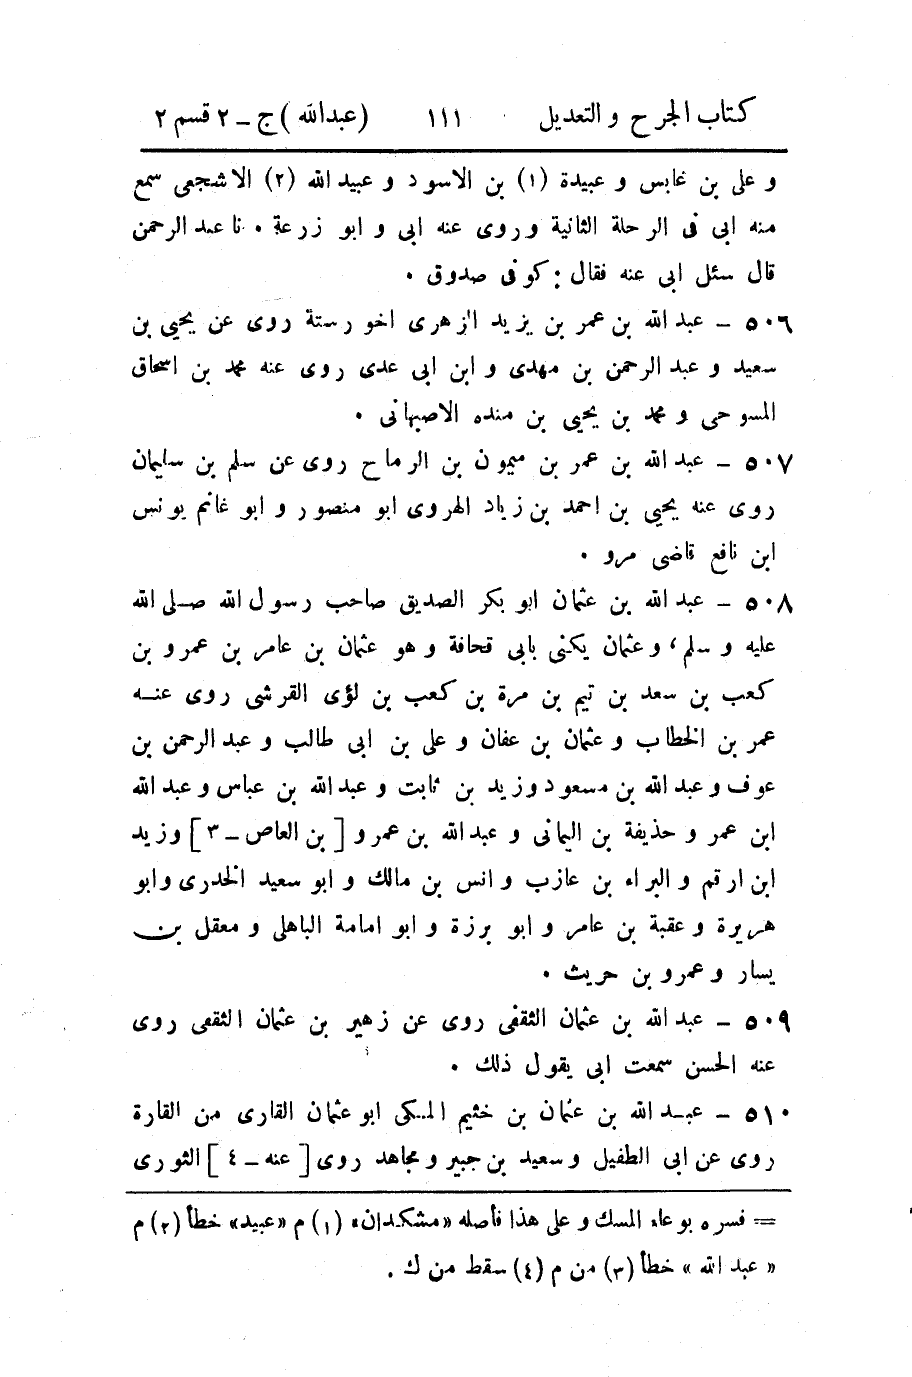 كتاب الجرح و التعديل ١١١ (عبدالله) ج - ٢ قسم ٢
و على بن عابس و عبيدة (١) بن الاسود و عبيد الله (٢) الاشجعى سمع
منه ابى فى الرحلة الثانية وروى عنه ابى و ابو زرعة . نا عبد الرحمن
قال سئل ابى عنه فقال : كوفى صدوق .
٥٠٦ - عبد الله بن عمر بن يزيد الزهرى اخو رستة روى عن يحيى بن
سعيد و عبد الرحمن بن مهدى و ابن ابى عدى روى عنه محمد بن اسحاق
المسوحى و محمد بن يحيى بن منده الاصبهانى .
٥٠٧ - عبد الله بن عمر بن ميمون بن الرماح روى عن سلم بن سليمان
روى عنه يحيى بن احمد بن زياد الهروى ابو منصور و ابو غانم يونس
ابن نافع قاضى مرو .
٥٠٨ - عبد الله بن عثمان ابو بكر الصديق صاحب رسول الله صلى الله
عليه و سلم، و عثمان يكنى بابى قحافة و هو عثمان بن عامر بن عمرو بن
كعب بن سعد بن تيم بن مرة بن كعب بن لؤى القرشى روى عنه
عمر بن الخطاب و عثمان بن عفان و على بن ابى طالب و عبد الرحمن بن
عوف و عبد الله بن مسعود وزيد بن ثابت و عبد الله بن عباس و عبد الله
ابن عمر و حذيفة بن اليمانى و عبد الله بن عمرو [ بن العاص - ٣ ] وزيد
ابن ارقم و البراء بن عازب و انس بن مالك و ابو سعيد الخدرى وابو
هريرة و عقبة بن عامر و ابو برزة و ابو امامة الباهلى و معقل بن
يسار و عمرو بن حريث .
٥٠٩ - عبد الله بن عثمان الثقفى روى عن زهير بن عثمان الثقفى روى
عنه الحسن سمعت ابى يقول ذلك .
٥١٠ - عبد الله بن عثمان بن خثيم المكى ابو عثمان القارى من القارة
روى عن ابى الطفيل و سعيد بن جبير و مجاهد روى [ عنه - ٤ ] الثورى
= فسره بوعاء المسك و على هذا فأصله «مشكدان» (١) م «عبيد» خطأ (٢) م
« عبد الله » خطأ (٣) من م (٤) سقط من ك .